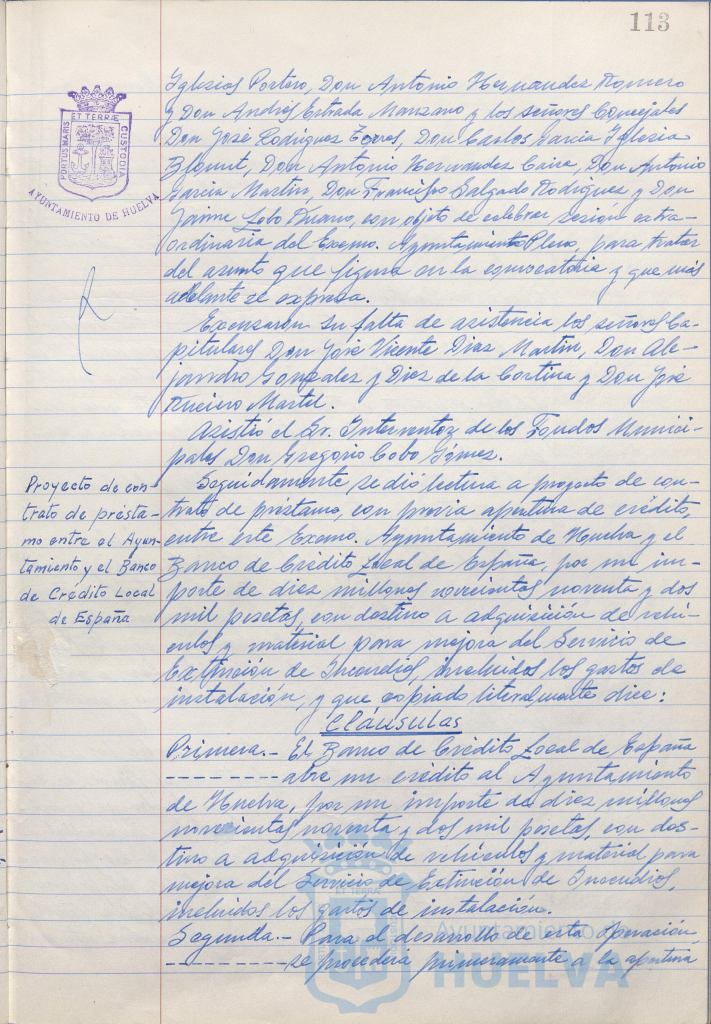 113
Iglesias Portero, Don Antonio Hernandez Romero
y Don Andrés Estrada Manzano y los señores Concejales
Don José Rodriguez Torres, Don Carlos Garcia Iglesia
Blount, Don Antonio Hernandez Caire, Don Antonio
Garcia Martin, Don Francisco Salgado Rodriguez y Don
Jaime Lobo, con objeto de celebrar sesión extra-
ordinaria del Excmo. Ayuntamiento Pleno, para tratar
del asunto que figura en la convocatoria y que más
adelante se expresa.
Excusaron su falta de asistencia los señores Ca-
pitulares Don José Vicente Diaz Martin, Don Ale-
jandro Gonzalez y Diez de la Cortina y Don José
Martel.
Asistió el Sr. Interventor de los Fondos Munici-
pales Don Gregorio Cobo Gómez.
Seguidamente se dió lectura a proyecto de con-
trato de préstamo, con previa apertura de crédito,
entre este Excmo. Ayuntamiento de Huelva y el
Banco de Crédito Local de España, por un im-
porte de diez millones novecientas noventa y dos
mil pesetas, con destino a adquisición de vehi-
culos y material para mejora del Servicio de
Extinción de Incendios, incluidos los gastos de
instalación, y que copiado literalmente dice:
Cláusulas
Primera.- El Banco de Crédito Local de España
--------- abre un crédito al Ayuntamiento
de Huelva, por un importe de diez millones
novecientas noventa y dos mil pesetas, con des-
tino a adquisición de vehículos y material para
mejora del Servicio de Extinción de Incendios,
incluidos los gastos de instalación.
Segunda.- Para el desarrollo de esta operación,
--------- se procederá primeramente a la apertura
Proyecto de con-
trato de présta-
mo entre el Ayun-
tamiento y el Banco
de Crédito Local
de España
PORTUS MARIS ET TERRÆ CUSTODIA
AYUNTAMIENTO DE HUELVA
Ayuntamiento de
HUELVA